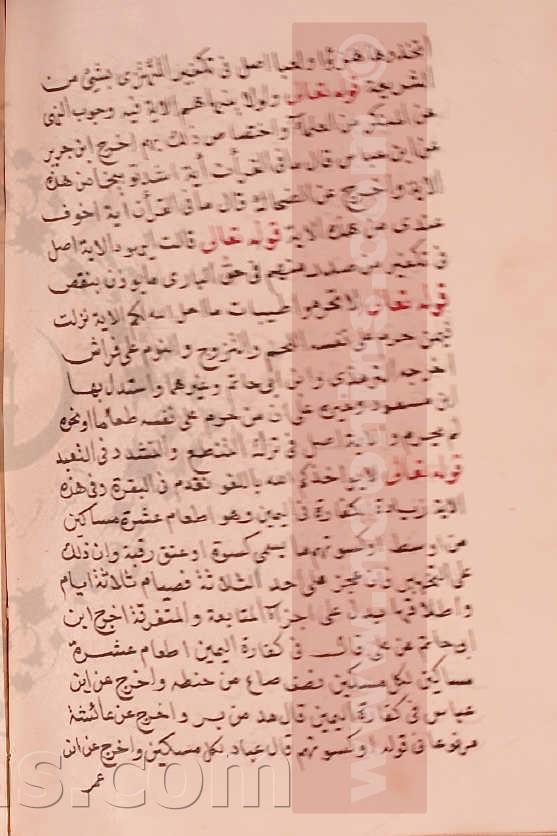 اتخذوها هزوا ولعبا اصل في تكفير المستهزئ بشئ من
الشريعة قوله تعالى لولا ينهاهم الاية فيه وجوب النهى
عن المنكر على العلماء واختصاص ذلك بهم اخرج ابن جرير
عن ابن عباس قال ما في القرأن أية اشد توبيخا من هذه
الاية واخرج عن الضحاك قال ما في القرأن أية اخوف
عندى من هذه الاية قوله تعالى قالت اليهود الاية اصل
في تكفير من صدر منهم في حق البارى ما يؤذن بنقص
قوله تعالى لا تحرموا طيبات ما احل الله لكم الاية نزلت
فيمن حرم على نفسه اللحم والتزوج والنوم على فراش
اخرجه الترمذى وابن ابى حاتم وغيرهما واستدل بها
ابن مسعود وغيره على ان من حرم على نفسه طعاما ونحوه
لم يحرم والاية اصل في ترك التنطع والتشدد في التعبد
قوله تعالى لا يواخذكم الله باللغو تقدم في البقرة وفي هذه
الاية زيادة الكفارة في اليمين وهو اطعام عشرة مساكين
من اوسط اوكسوتهم ما يسمى كسوة اوعتق رقبة وان ذلك
على التخيير فان عجز على احد الثلاثة فصيام ثلاثة ايام
واطلاقها فيدل على اجزاء المتابعة والمتفرقة اخرج ابن
ابى حاتم عن على قال في كفارة اليمين اطعام عشرة
مساكين لكل مسكين نصف صاع من حنطه واخرج عن ابن
عباس في كفارة اليمين قال مد من بر واخرج عن عائشة
مرفوعا في قوله اوكسوتهم قال عباء لكل مسكين واخرج عن ابن
عمر